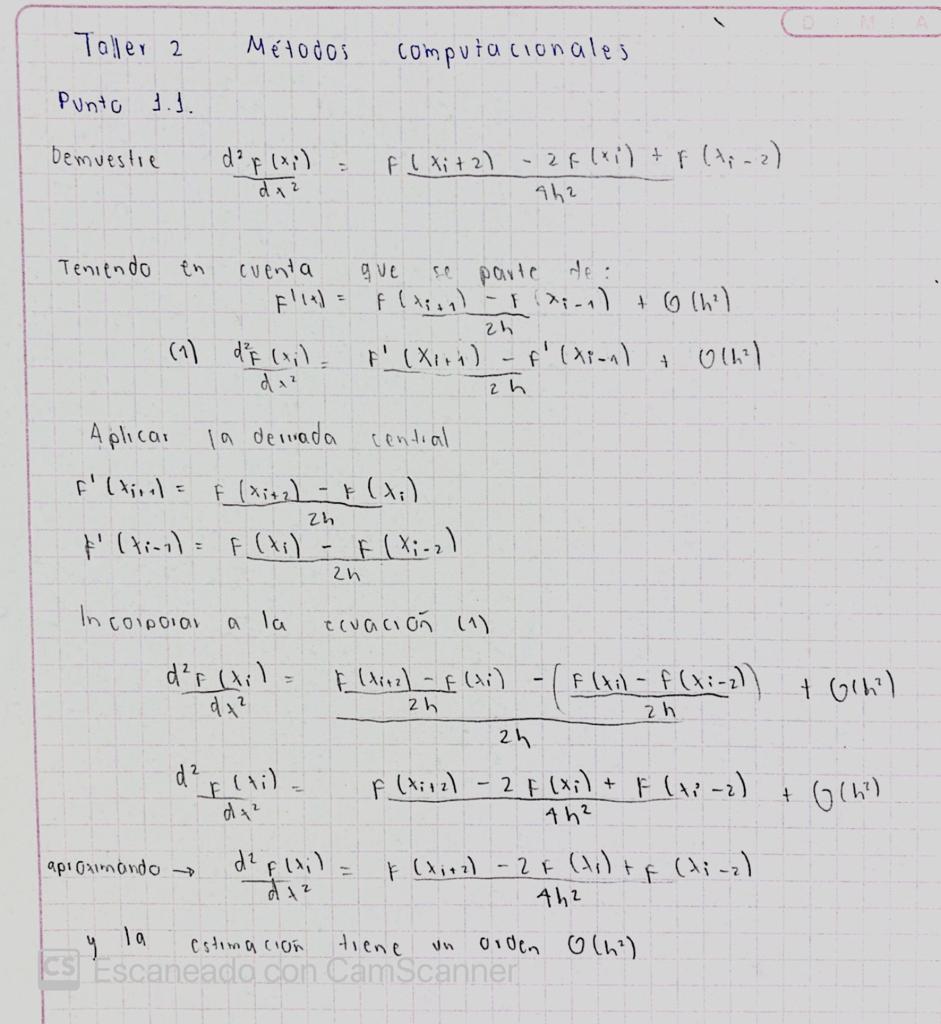 D M A
Taller 2 Métodos computacionales
Punto 1.1.
Demuestre d²F(xi)/dx² = F(xi+2) - 2F(xi) + F(xi-2) / 4h²
Teniendo en cuenta que se parte de:
F'(x) = F(xi+1) - F(xi-1) / 2h + O(h²)
(1) d²F(xi)/dx² = F'(xi+1) - F'(xi-1) / 2h + O(h²)
Aplicar la derivada central
F'(xi+1) = F(xi+2) - F(xi) / 2h
F'(xi-1) = F(xi) - F(xi-2) / 2h
Incorporar a la ecuación (1)
d²F(xi)/dx² = F(xi+2) - F(xi) / 2h - (F(xi) - F(xi-2) / 2h) / 2h + O(h²)
d²F(xi)/dx² = F(xi+2) - 2F(xi) + F(xi-2) / 4h² + O(h²)
aproximando → d²F(xi)/dx² = F(xi+2) - 2F(xi) + F(xi-2) / 4h²
y la estimación tiene un orden O(h²)
CS Escaneado con CamScanner